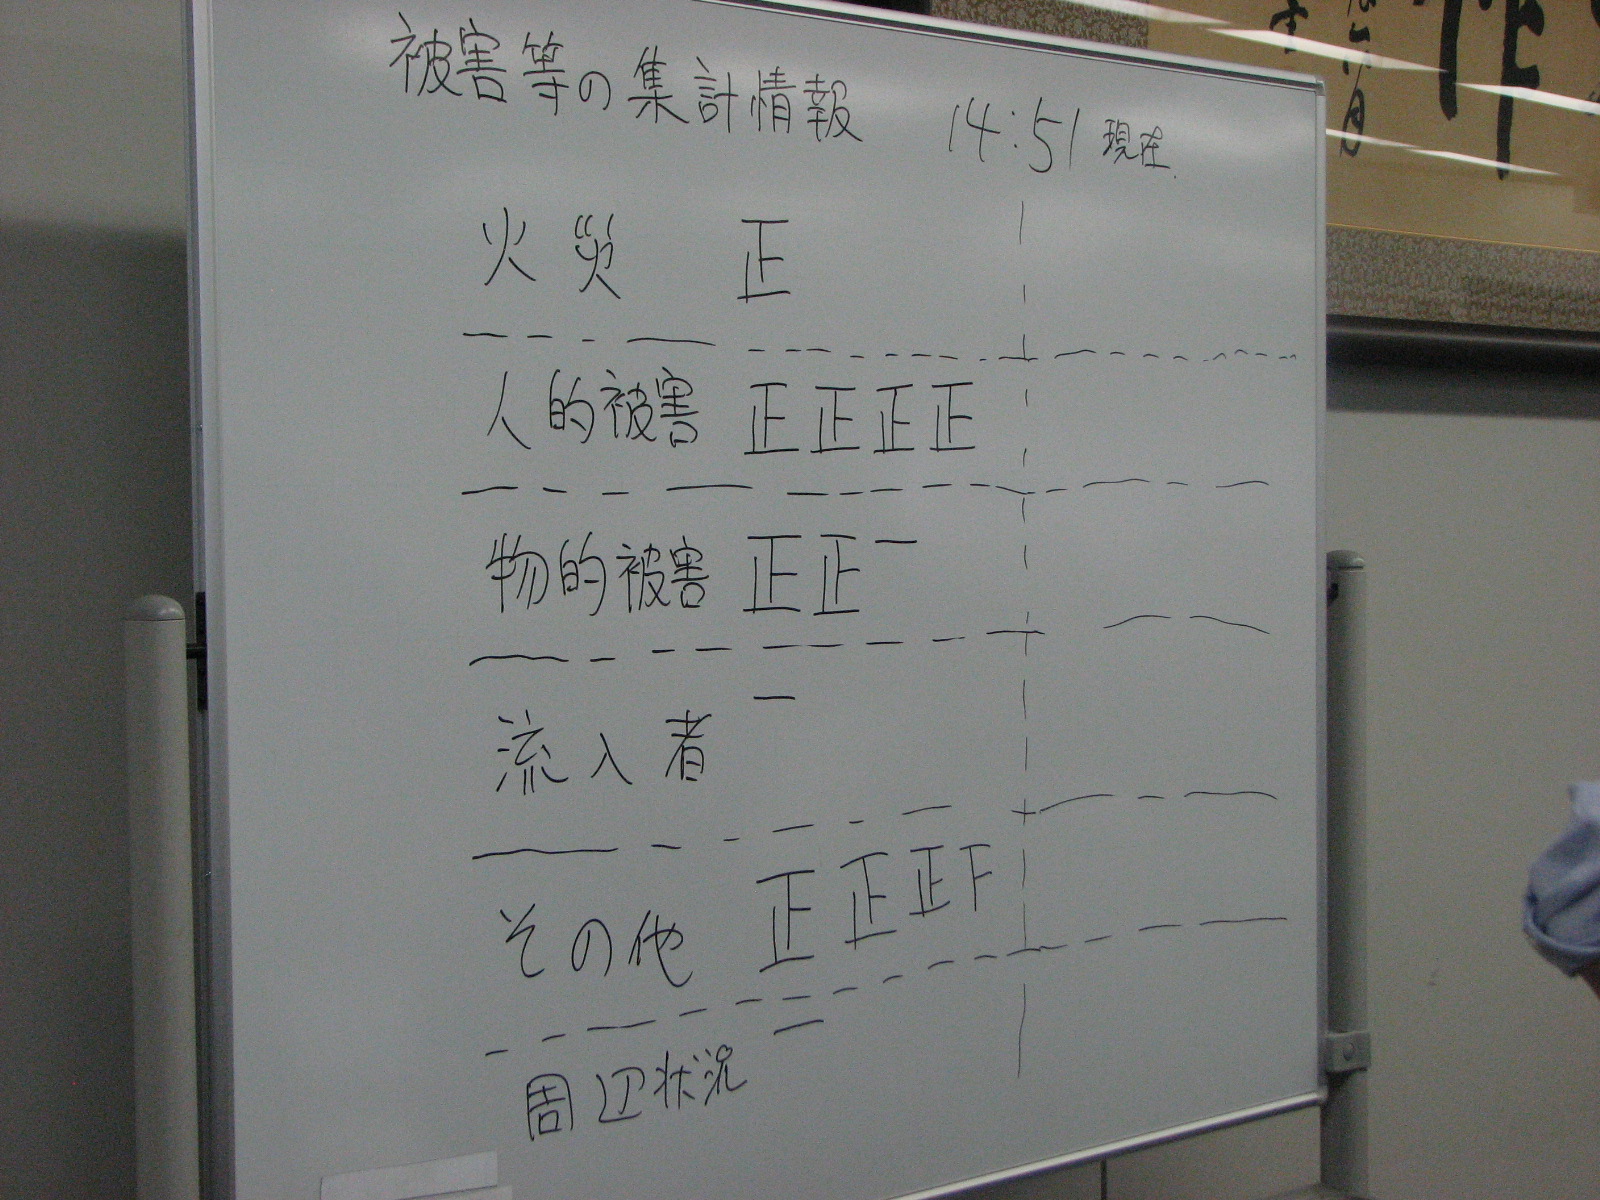 被害等の集計情報 14:51 現在
火災 正
人的被害 正正正正
物的被害 正正一
流入者 一
その他 正正正下
周辺状況 一